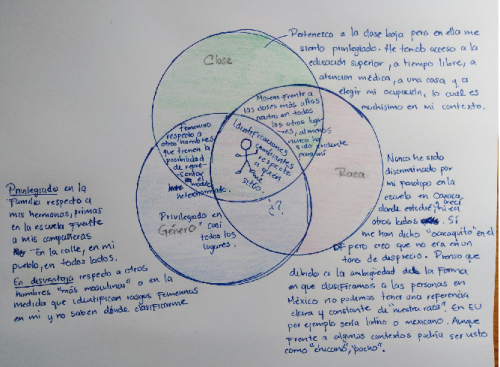 Pertenezco a la clase baja pero en ella me
siento privilegiado. He tenido acceso a la
educación superior, a tiempo libre, a
atención médica, a una casa y a
elegir mi ocupación, lo cual es
muchísimo en mi contexto.
Clase
Moreno frente a
las clases más altas
neutro en todos
los otros
al menos
nunca ha
sido
para mí
femenino
respecto a
otros hombres
que tienen la
posibilidad
de repre-
sentar
el modelo
heteronormado.
identificaciones
cambiantes
respecto
a quien
me
sitúo
Raza
Nunca he sido
discriminado por
mi fenotipo en la
escuela en Oaxaca,
donde estudié, ni en
otros lados. Sí
me han dicho "oaxaquito" en el
DF pero creo que no era en un
tono de desprecio. Pienso que
debido a la ambigüedad de la forma
en que clasificamos a las personas en
México no podemos tener una referencia
clara y constante de "nuestra raza". En EU
por ejemplo sería latino o mexicano. Aunque
frente a algunos contextos podría ser visto
como "chicano", "pocho".
¿?
Privilegiado en
Género casi
todos los
lugares.
Privilegiado en la
familia respecto a
mis hermanas, primas
en la escuela frente
a mis compañeras
En la calle, en mi
pueblo, en todos lados.
En desventaja respecto a otros
hombres "más masculinos" o en la
medida que identifican rasgos femeninos
en mi y no saben dónde clasificarme